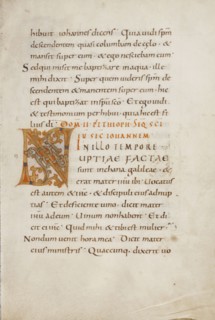 hibuit iohannes dicens. Quia uidi spm
descendentem quasi columbam de celo. &
mansit super eum. & ego nesciebam eum
Sed qui misit me baptizare in aqua. ille
mihi dixit. Super quem uideris spm de
scendentem & manentem super eum. hic
est qui baptizat in spu sco. Et ego uidi.
& testimonium perhibui. quia hic est fi
lius di.
IOHANNEM
IN ILLO TEMPORE
NUPTIAE FACTAE
sunt in chana galileae. &
erat mater ihu ibi. Vocatus
est autem & ihc. & discipuli eius ad nup
tias. Et deficiente uino. dicit mater
ihu ad eum. Vinum non habent. Et di
cit ei ihc. Quid mihi & tibi est mulier.
Nondum uenit hora mea. Dicit mater
eius ministris. Quaecumque dixerit uo